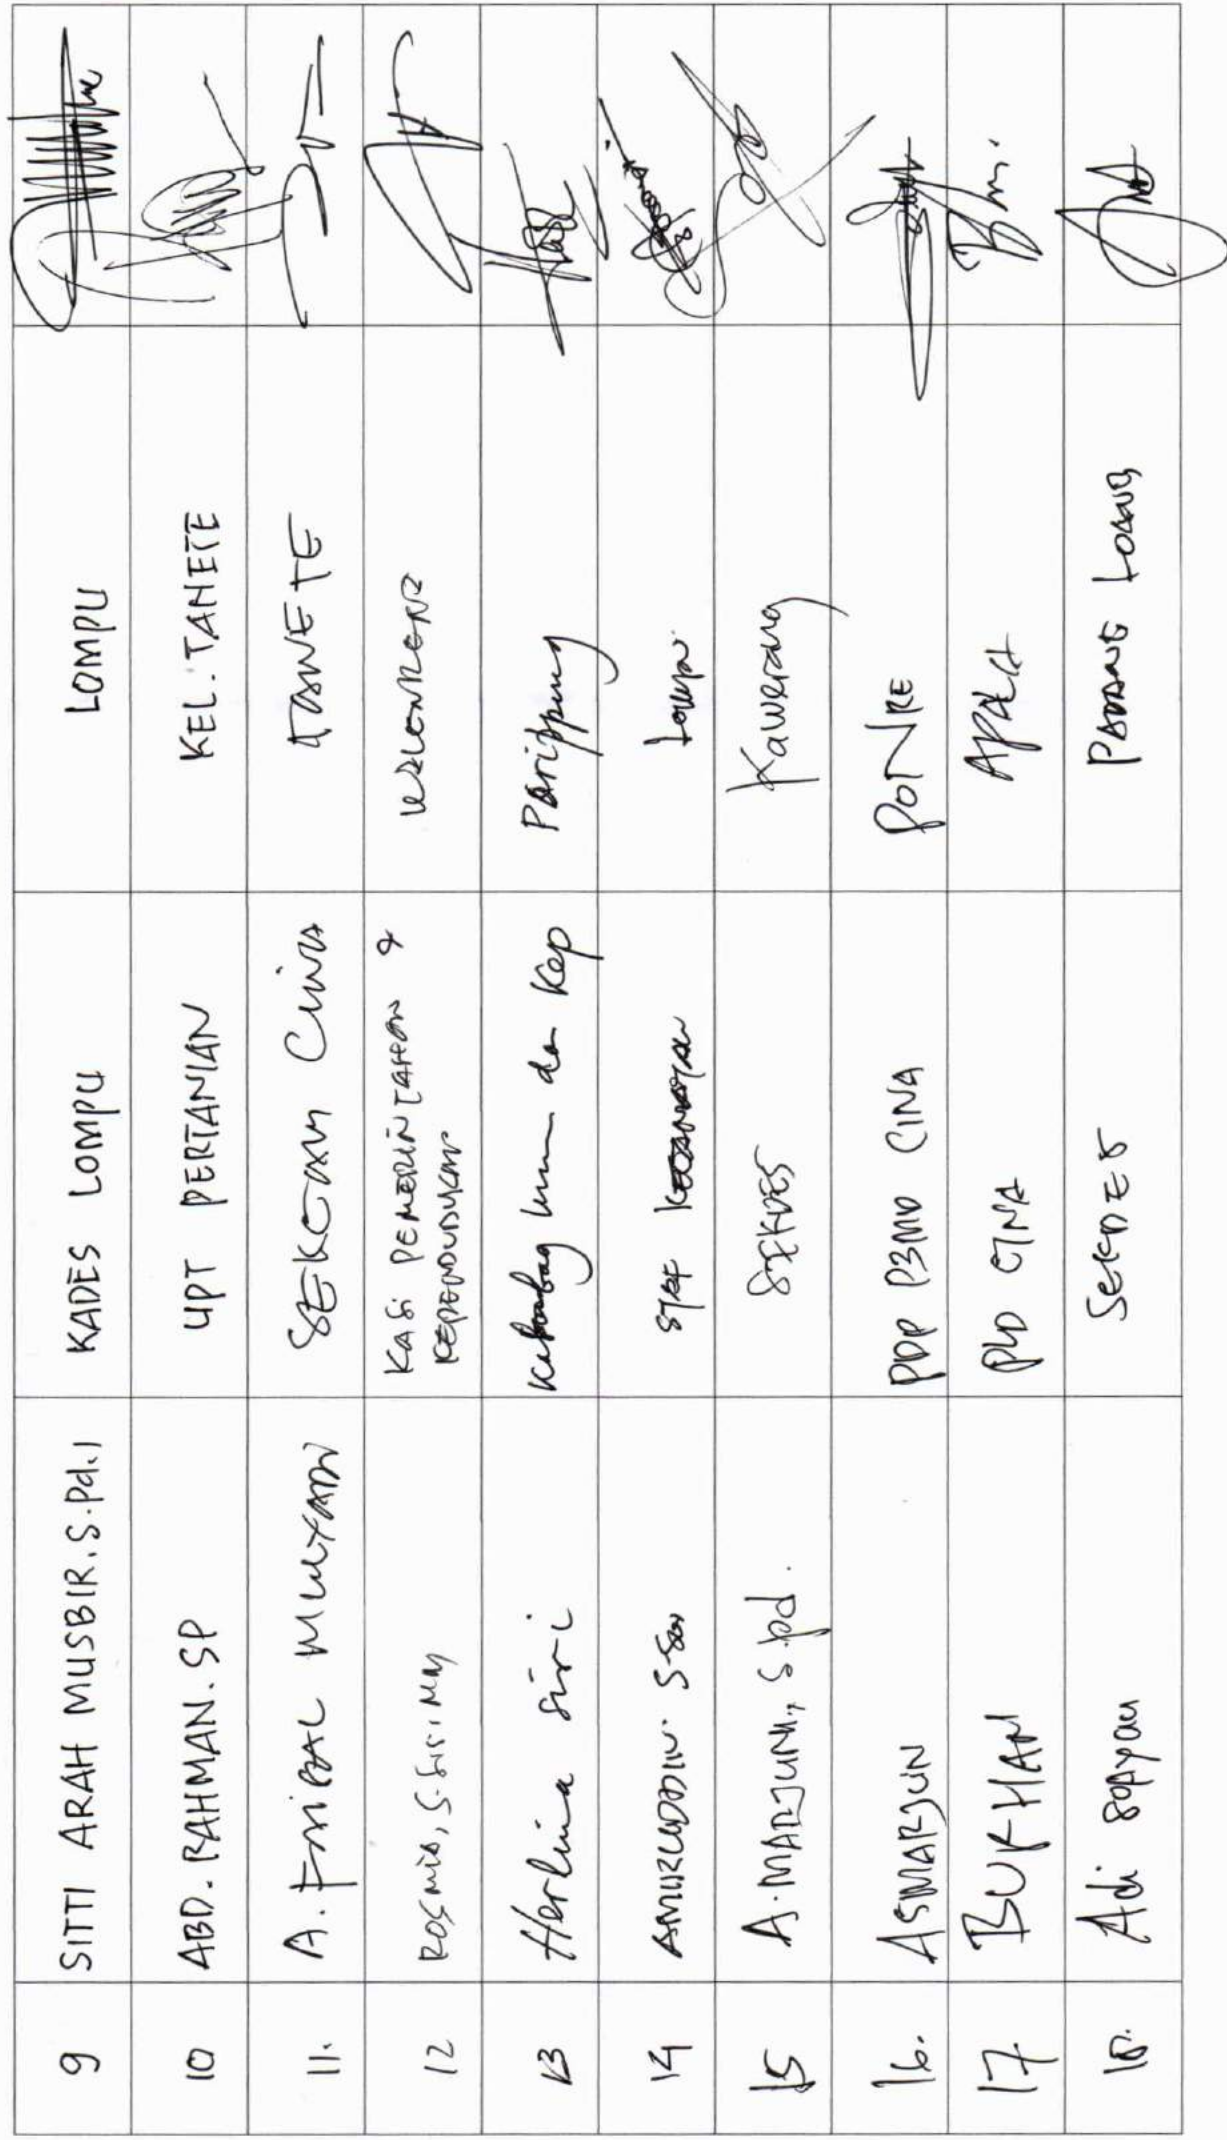 9 SITTI ARAH MUSBIR.S.Pd.I KADES LOMPU LOMPU
10 ABD. RAHMAN. SP UPT PERTANIAN KEL. TANETE
11. A. SEKCAM CINA TANETE
12 ROSMIA, S.Sos. MM KASI PEMERINTAHAN &
KEPENDUDUKAN
13 Herlina Siri Kasubag Umum dan Kep Parippung
14 AMIRUDDIN S.Sos STAF Lompu
15 A. MARJUNI, S.pd. SEKDES Kawerang
16. ASMARJUN PDP P3MD CINA PONRE
17 BURHAN PLD CINA APALA
18. Adi Sopyan SEKDES PADANG LOANG